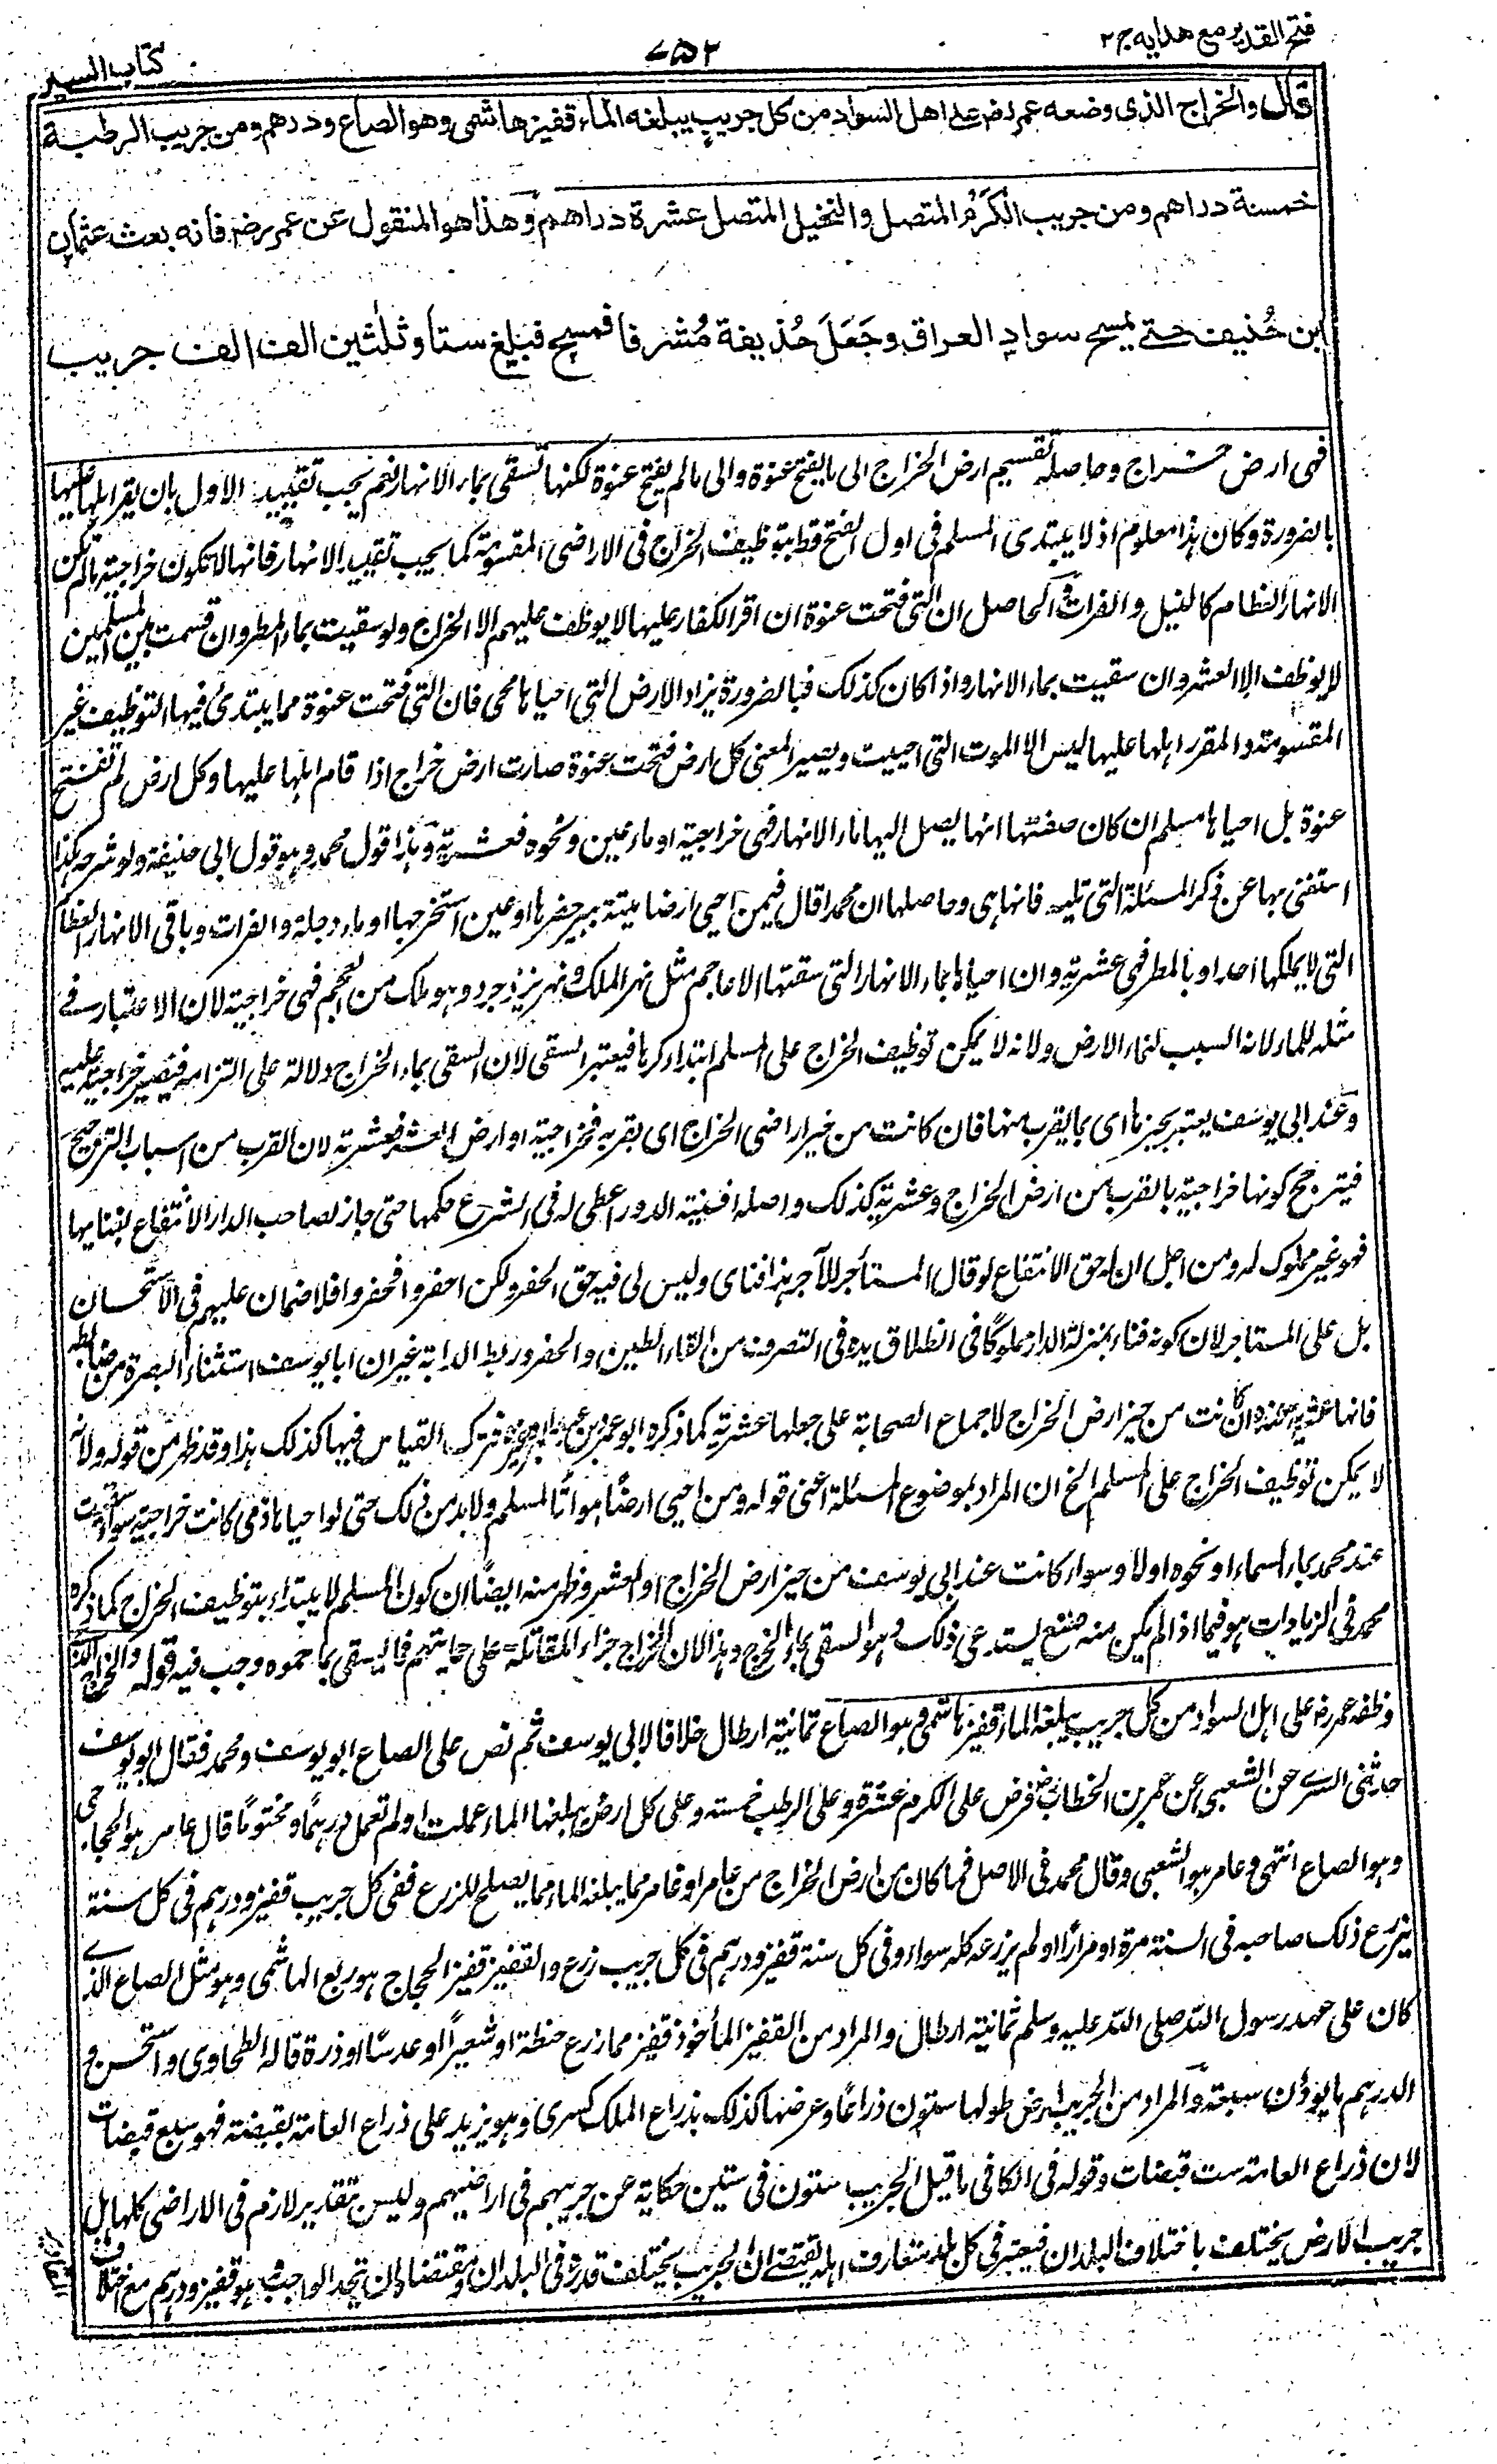 فتح القدير مع هدايه ج ٢
٧٥٢
كتاب السير
قال والخراج الذى وضعه عمر رض على اهل السواد من كل جريب يبلغه الماء قفيز هاشمى وهو الصاع ودرهم ومن جريب الرطبة
خمسة دراهم ومن جريب الكرم المتصل والنخيل المتصل عشرة دراهم وهذا هو المنقول عن عمر رض فانه بعث عثمان
ابن حُنيف حتى يمسح سواد العراق وجَعَلَ حُذيفة مُشرفا فمسح فبلغ ستا وثلثين الف الف جريب
فهى ارض خراج وحاصله تقسيم ارض الخراج الى ما يفتح عنوة والى مالم يفتح عنوة لكنها تسقى بماء الانهار نعم يجب تقييد الاول بان يقر اهلها عليها
بالضرورة وكان هذا معلوم اذ لا يبتدى المسلم فى اول الفتح قط بتوظيف الخراج فى الاراضى المقسومة كما يجب تقييد الانهار فانها لا تكون خراجية مالم تكن
الانهار العظام كالنيل والفرات فى الحاصل ان التى فتحت عنوة ان اقر الكفار عليها لا يوظف عليهم الا الخراج ولو سقيت بماء المطر وان قسمت بين المسلمين
لا يوظف الا العشر وان سقيت بماء الانهار واذا كان كذلك فبالضرورة يزاد الارض التى احياها محى فان التى فتحت عنوة مما يبتدئ فيها التوظيف غير
المقسومة والمقرر اهلها عليها ليس الا الموت التى احييت ويصير المعنى كل ارض فتحت عنوة صارت ارض خراج اذا قام اهلها عليها وكل ارض لم تفتح
عنوة بل احياها مسلم ان كان صفتها انها يصل اليها ماء الانهار فهى خراجية او ماء عين ونحوه فعشرية وهذا قول محمد وهو قول ابى حنيفة ولو شرحه هكذا
استغنى بها عن ذكر المسئلة التى تليه فانها هى وحاصلها ان محمدا قال فيمن احيى ارضا ميتة ببير حفرها او عين استخرجها او ماء دجلة والفرات وباقى الانهار العظام
التى لا يملكها احد او بالمطر فهى عشرية وان احياها بماء الانهار التى سقتها الاعاجم مثل نهر الملك ونهر يزدجرد وهو ملك من العجم فهى خراجية لان الاعتبار فى
مثله للماء لانه السبب لنماء الارض ولانه لا يمكن توظيف الخراج على المسلم ابتداء كرها فيعتبر السقى لان السقى بماء الخراج دلالة على التزامه فيصير خراجية عليه
وعند ابى يوسف يعتبر بحيزها اى بما يقرب منها فان كانت من خير اراضى الخراج اى بقربه فخراجية او ارض العشر فعشرية لان القرب من اسباب الترجيح
فيترجح كونها خراجية بالقرب من ارض الخراج وعشرية كذلك واصله افنية الدور اعطى له فى الشرع حكمها حتى جاز لصاحب الدار الانتفاع بفنايها
فهو غير مملوك له ومن اجل ان له حق الانتفاع لو قال المستأجر للآجر هذا فناى وليس لى فيه حق الحفر ولكن احفروا فحفروا فلا ضمان عليهم فى الاستحسان
بل على المستاجر لان كونه فناء بمنزلة الدار مملوكًا فى انطلاق يده فى التصرف من القاء الطين والحفر وربط الدابة غير ان ابا يوسف استثناء البصرة من ضابطه
فانها عشرية عنده وان كانت من حيز ارض الخراج لاجماع الصحابة على جعلها عشرية كما ذكره ابو عمر بن عبد البر وغيره فترك القياس فيها كذلك هذا وقد ظهر من قوله ولانه
لا يمكن توظيف الخراج على المسلم الخ ان المراد بموضوع المسئلة اعنى قوله ومن احيى ارضًا مواتًا المسلم ولا بد من ذلك حتى لو احياها ذمى كانت خراجية سواء سقيت
عند محمد بماء السماء او نحوه اولا وسواء كانت عند ابى يوسف من حيز ارض الخراج او العشر وظهر منه ايضًا ان كون المسلم لا يبتداء بتوظيف الخراج كما ذكره
محمد فى الزيادات هو فيما اذا لم يكن منه صنع يستدعى ذلك وهو السقى بماء الخراج وهذا لان الخراج جزاء المقاتلة على حمايتهم فما يسقى بما حموه وجب فيه قوله والخراج الذى
وظفه عمر رض على اهل السواد من كل جريب يبلغه الماء قفيز هاشمى وهو الصاع ثمانية ارطال خلافا لابى يوسف ثم نص على الصاع ابو يوسف ومحمد فقال ابو يوسف
حدثنى السرى عن الشعبى عن عمر بن الخطاب فرض على الكرم عشرة وعلى الرطب خمسة وعلى كل ارض يبلغها الماء عملت او لم تعمل درهمًا ومختومًا قال عامر هو الحجاجى
وهو الصاع انتهى وعامر هو الشعبى وقال محمد فى الاصل فما كان من ارض الخراج من عامر او غامر مما يبلغه الماء مما يصلح للزرع ففى كل جريب قفيز ودرهم فى كل سنة
يزرع ذلك صاحبه فى السنة مرة او مرارًا او لم يزرعه كله سواء وفى كل سنة قفيز ودرهم فى كل جريب زرع والقفيز قفيز الحجاج هو ربع الهاشمى وهو مثل الصاع الذى
كان على عهد رسول الله صلى الله عليه وسلم ثمانية ارطال والمراد من القفيز المأخوذ قفيز مما زرع حنطة او شعيرًا او عدسًا او ذرة قاله الطحاوى واستحسن و
الدرهم ما يوزن سبعة والمراد من الجريب ارض طولها ستون ذراعًا وعرضها كذلك بذراع الملك كسرى وهو يزيد على ذراع العامة بقبضة فهو سبع قبضات
لان ذراع العامة ست قبضات وقوله فى الكافى ما قيل الجريب ستون فى ستين حكاية عن جريبهم فى اراضيهم وليس بتقدير لازم فى الاراضى كلها بل
جريب الارض يختلف باختلاف البلدان فيعتبر فى كل بلد متعارف اهله يقتضى ان الجريب يختلف قدره فى البلدان ومقتضاه ان يتحد الواجب وهو قفيز ودرهم مع اختلاف
المقادير